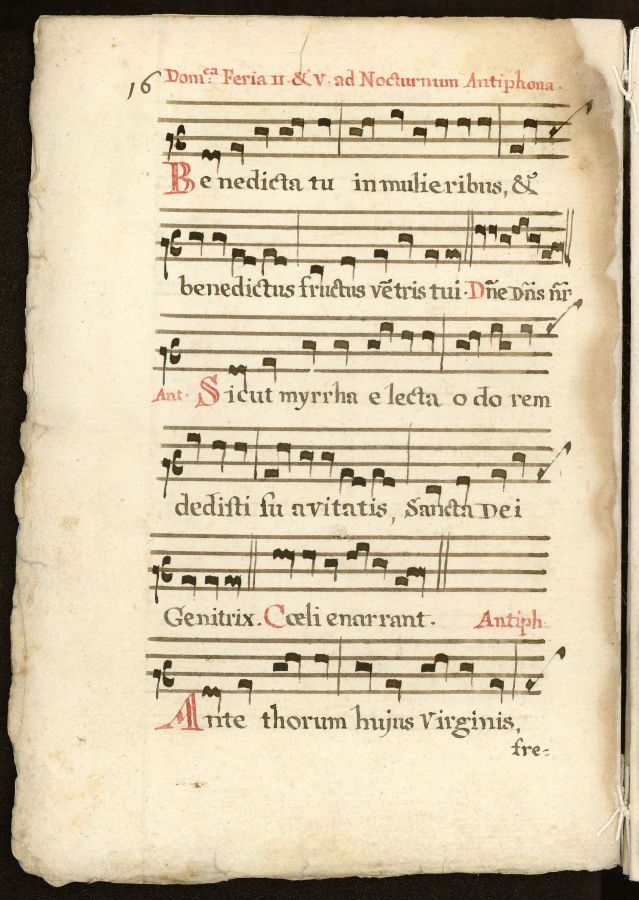 16 Dom.ca Feria II. & V. ad Nocturnum Antiphona.
Benedicta tu in mulieribus, &
benedictus fructus vẽtris tui. Dñe Dñs nr̃
Ant. Sicut myrrha electa odorem
dedisti suavitatis, Sancta Dei
Genitrix. Cœli enarrant. Antiph.
Ante thorum hujus Virginis,
fre=